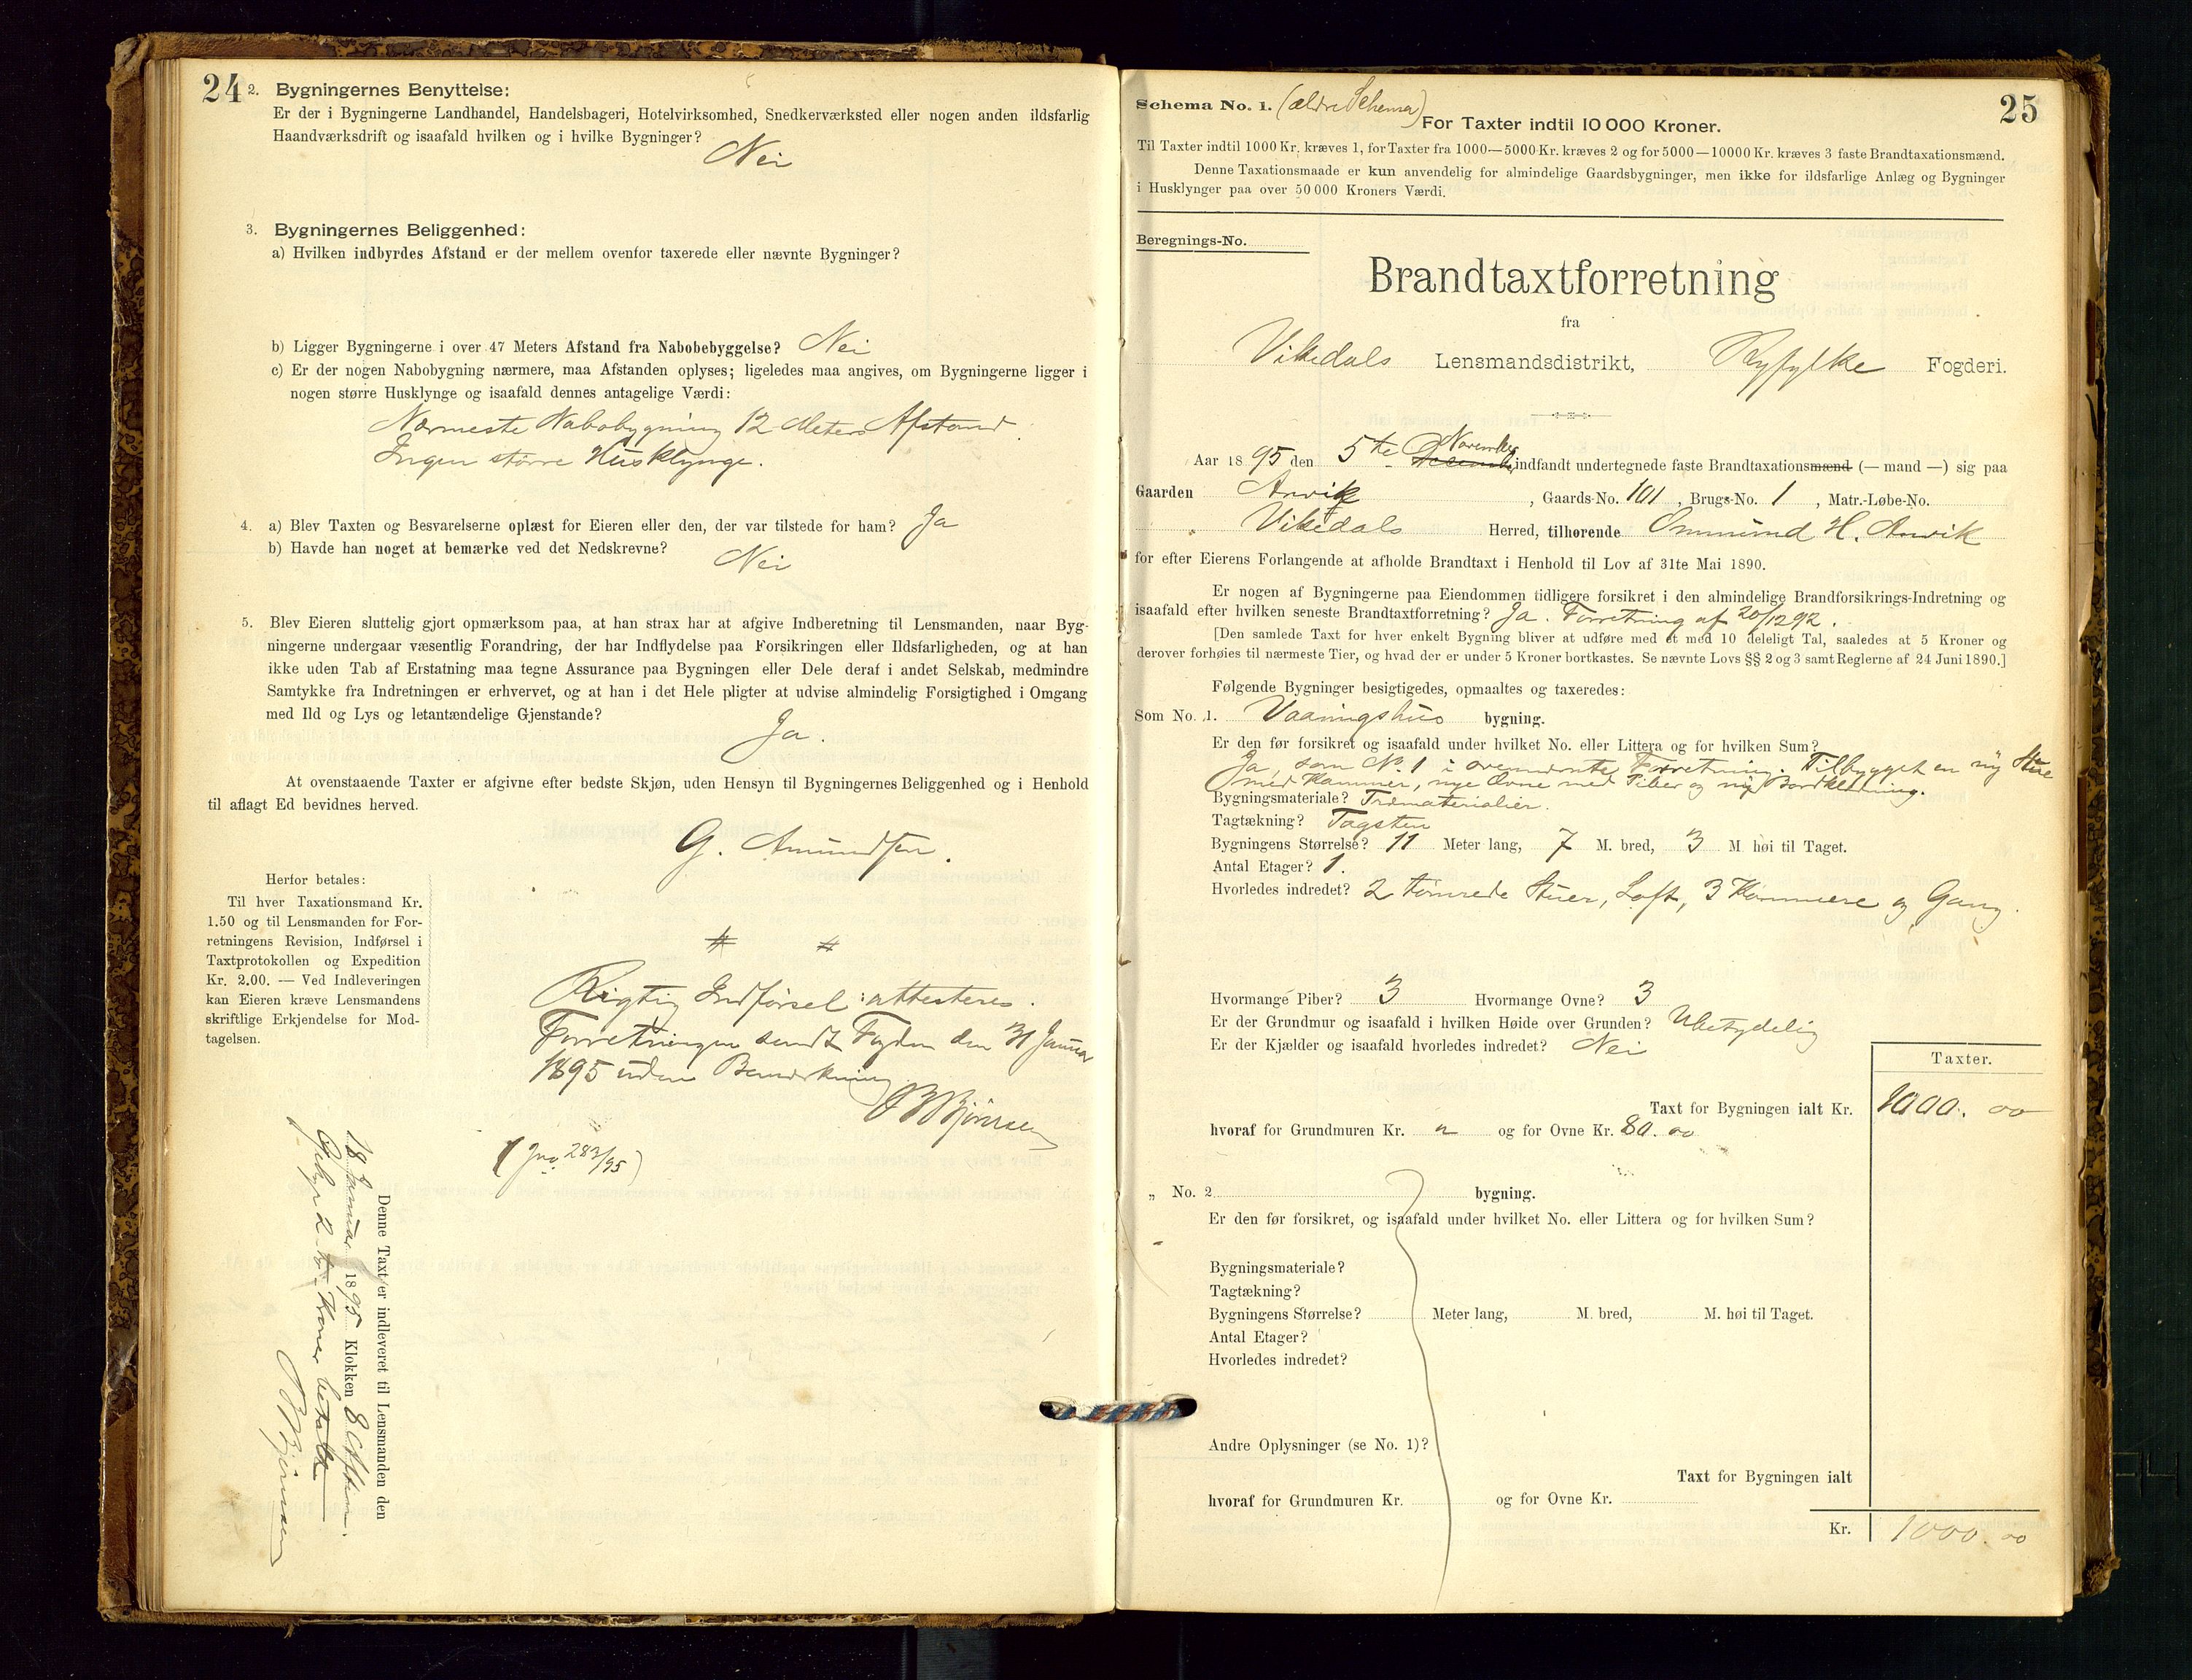 24
2. Bygningernes Benyttelse:
Er der i Bygningerne Landhandel, Handelsbageri, Hotelvirksomhed, Snedkerværksted eller nogen anden ildsfarlig
Haandværksdrift og isaafald hvilken og i hvilke Bygninger?
Nei
3. Bygningernes Beliggenhed:
a) Hvilken indbyrdes Afstand er der mellem ovenfor taxerede eller nævnte Bygninger?
b) Ligger Bygningerne i over 47 Meters Afstand fra Nabobebyggelse? Nei
c) Er der nogen Nabobygning nærmere, maa Afstanden oplyses; ligeledes maa angives, om Bygningerne ligger i
nogen større Husklynge og isaafald dennes antagelige Værdi:
Nærmeste Nabobygning 12 Meters Afstand.
Ingen større Husklynge.
4. a) Blev Taxten og Besvarelserne oplæst for Eieren eller den, der var tilstede for ham? Ja
b) Havde han noget at bemærke ved det Nedskrevne? Nei
5. Blev Eieren sluttelig gjort opmærksom paa, at han strax har at afgive Indberetning til Lensmanden, naar Byg-
ningerne undergaar væsentlig Forandring, der har Indflydelse paa Forsikringen eller Ildsfarligheden, og at han
ikke uden Tab af Erstatning maa tegne Assurance paa Bygningen eller Dele deraf i andet Selskab, medmindre
Samtykke fra Indretningen er erhvervet, og at han i det Hele pligter at udvise almindelig Forsigtighed i Omgang
med Ild og Lys og letantændelige Gjenstande?
Ja.
At ovenstaaende Taxter er afgivne efter bedste Skjøn, uden Hensyn til Bygningernes Beliggenhed og i Henhold
til aflagt Ed bevidnes herved.
G. Amundsen.
Herfor betales:
Til hver Taxationsmand Kr.
1.50 og til Lensmanden for For-
retningens Revision, Indførsel i
Taxtprotokollen og Expedition
Kr. 2.00. — Ved Indleveringen
kan Eieren kræve Lensmandens
skriftlige Erkjendelse for Mod-
tagelsen.
Rigtig Indførsel attesteres.
Forretningen sendt Fogden den 31 Januar
1895 uden Bemærkning
Bjørnsen
(Jno. 283/95)
Denne Taxt er indleveret til Lensmanden den
18 Januar 1895 Klokken 8 Eftm.
Gebyr 2 to Kroner betalt
Bjørnsen
25
Schema No. 1. (ældre Schema)
For Taxter indtil 10 000 Kroner.
Til Taxter indtil 1000 Kr. kræves 1, for Taxter fra 1000—5000 Kr. kræves 2 og for 5000—10000 Kr. kræves 3 faste Brandtaxationsmænd.
Denne Taxationsmaade er kun anvendelig for almindelige Gaardsbygninger, men ikke for ildsfarlige Anlæg og Bygninger
i Husklynger paa over 50 000 Kroners Værdi.
Beregnings-No.
Brandtaxtforretning
fra
Vikedals Lensmandsdistrikt, Ryfylke Fogderi.
November
Aar 1895 den 5te indfandt undertegnede faste Brandtaxationsmænd (— mand —) sig paa
Gaarden Anvik, Gaards-No. 101, Brugs-No. 1, Matr.-Løbe-No.
Vikedals Herred, tilhørende Ommund H. Anvik
for efter Eierens Forlangende at afholde Brandtaxt i Henhold til Lov af 31te Mai 1890.
Er nogen af Bygningerne paa Eiendommen tidligere forsikret i den almindelige Brandforsikrings-Indretning og
isaafald efter hvilken seneste Brandtaxtforretning? Ja. Forretning af 20/12 92.
[Den samlede Taxt for hver enkelt Bygning bliver at udføre med et med 10 deleligt Tal, saaledes at 5 Kroner og
derover forhøies til nærmeste Tier, og hvad der er under 5 Kroner bortkastes. Se nævnte Lovs §§ 2 og 3 samt Reglerne af 24 Juni 1890.]
Følgende Bygninger besigtigedes, opmaaltes og taxeredes:
Som No. 1. Vaaningshus bygning.
Er den før forsikret og isaafald under hvilket No. eller Littera og for hvilken Sum?
Ja, som No 1 i ovennævnte Forretning. Tilbygget en ny Stue
med Kammer, nye Ovne med Piber og ny Bordklædning.
Bygningsmateriale? Træmaterialier.
Tagtækning? Tagsten
Bygningens Størrelse? 11 Meter lang, 7 M. bred, 3 M. høi til Taget.
Antal Etager? 1.
Hvorledes indredet? 2 tømrede Stuer, Loft, 3 Kammere og Gang.
Hvormange Piber? 3 Hvormange Ovne? 3
Er der Grundmur og isaafald i hvilken Høide over Grunden? Ubetydelig
Er der Kjælder og isaafald hvorledes indredet? Nei
Taxter.
Taxt for Bygningen ialt Kr. 1000. 00
hvoraf for Grundmuren Kr. " og for Ovne Kr. 80.00
„ No. 2 bygning.
Er den før forsikret, og isaafald under hvilket No. eller Littera og for hvilken Sum?
Bygningsmateriale?
Tagtækning?
Bygningens Størrelse? Meter lang, M. bred, M. høi til Taget.
Antal Etager?
Hvorledes indredet?
Andre Oplysninger (se No. 1)?
Taxt for Bygningen ialt
hvoraf for Grundmuren Kr. og for Ovne Kr.
Kr. 1000.00